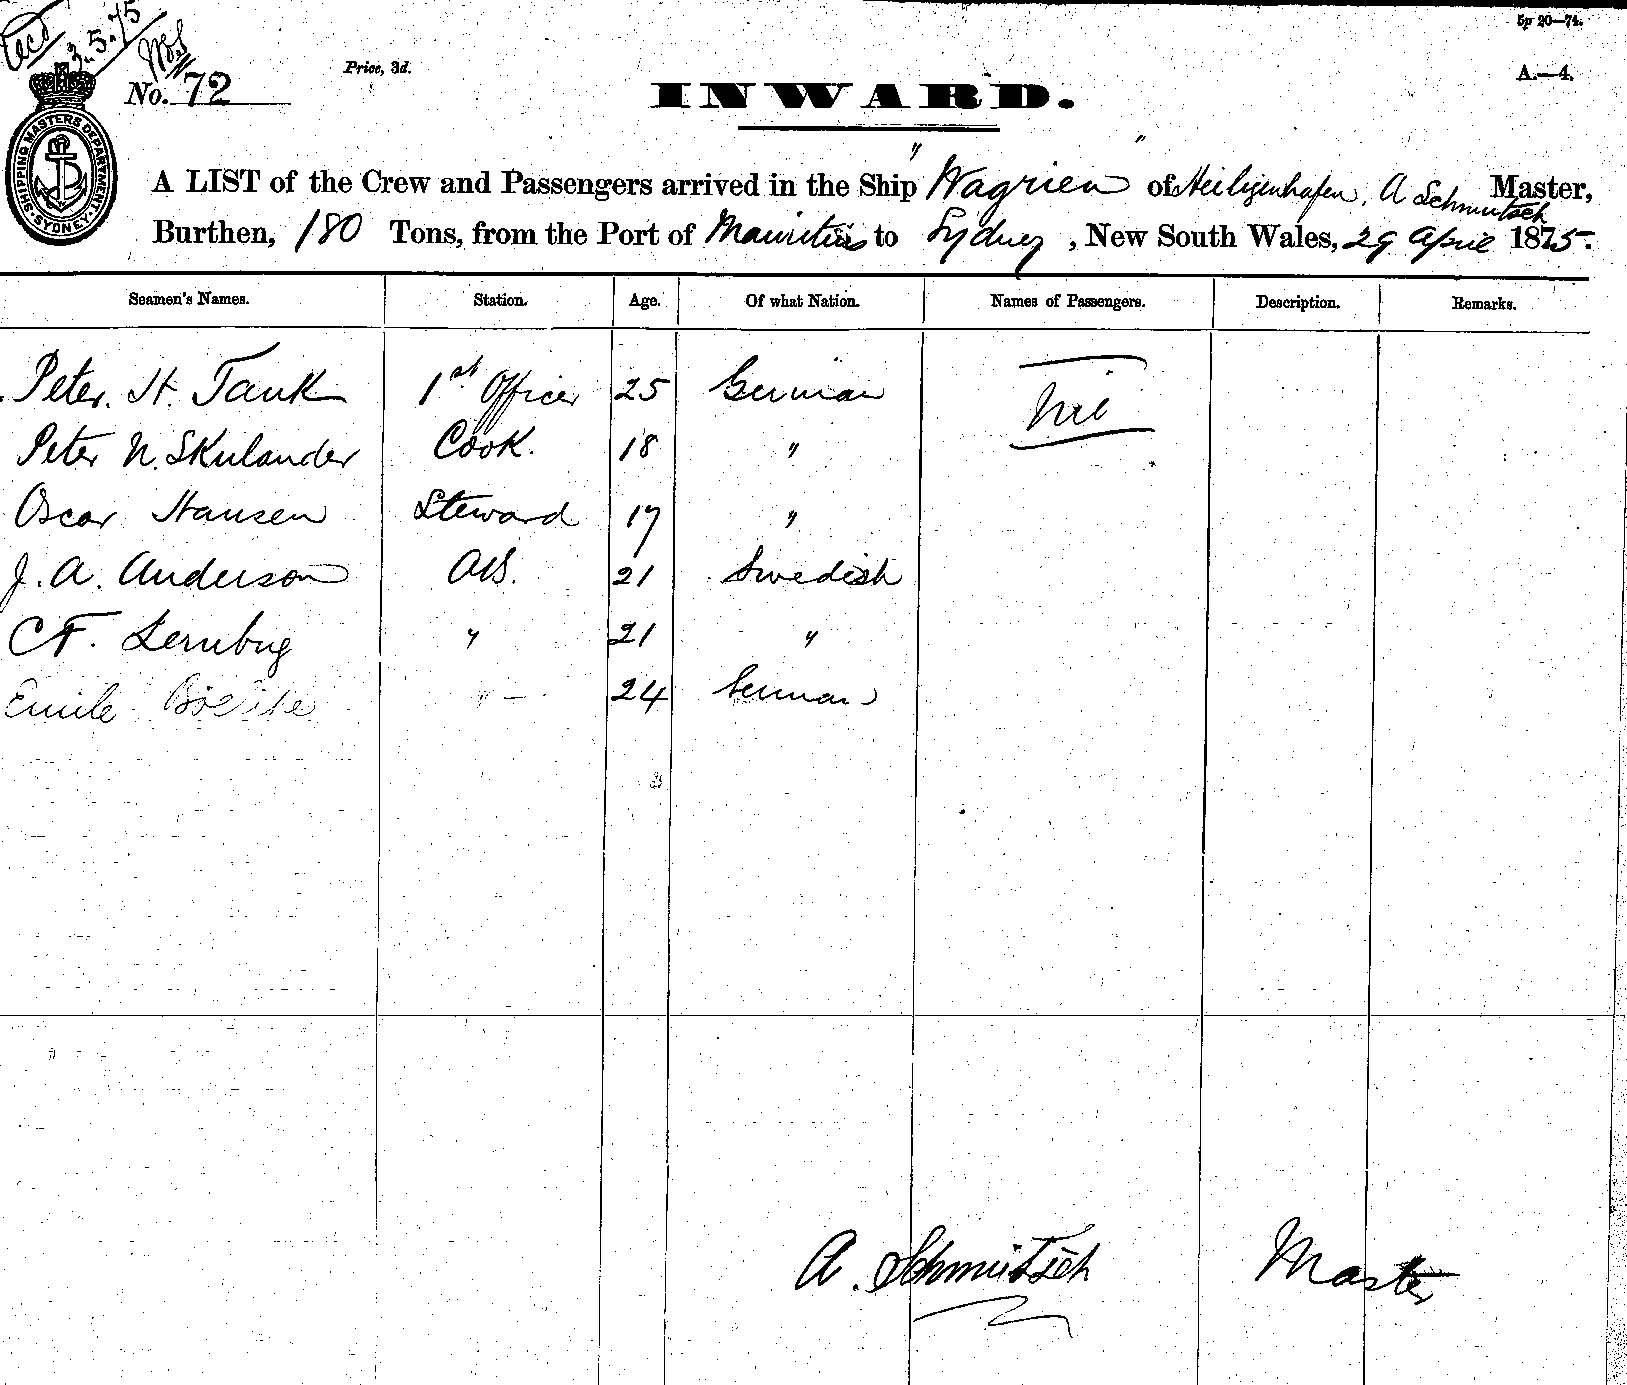 Recd 3.5.75
5p 20—74.
Price, 3d.
A.—4.
No. 72
INWARD.
SHIPPING MASTERS DEPARTMENT SYDNEY
A LIST of the Crew and Passengers arrived in the Ship "Wagrien" of Heiligenhafen, A Schmütsch Master,
Burthen, 180 Tons, from the Port of Mauritius to Sydney, New South Wales, 29 April 1875.
Seamen's Names. Station. Age. Of what Nation. Names of Passengers. Description. Remarks.
Peter. H. Tank 1st Officer 25 German nil
Peter N. Skulander Cook. 18 "
Oscar Hansen Steward 17 "
J. A. Anderson AB. 21 Swedish
C F. Lernbug " 21 "
Emile " 24 German
A. Schmütsch Master